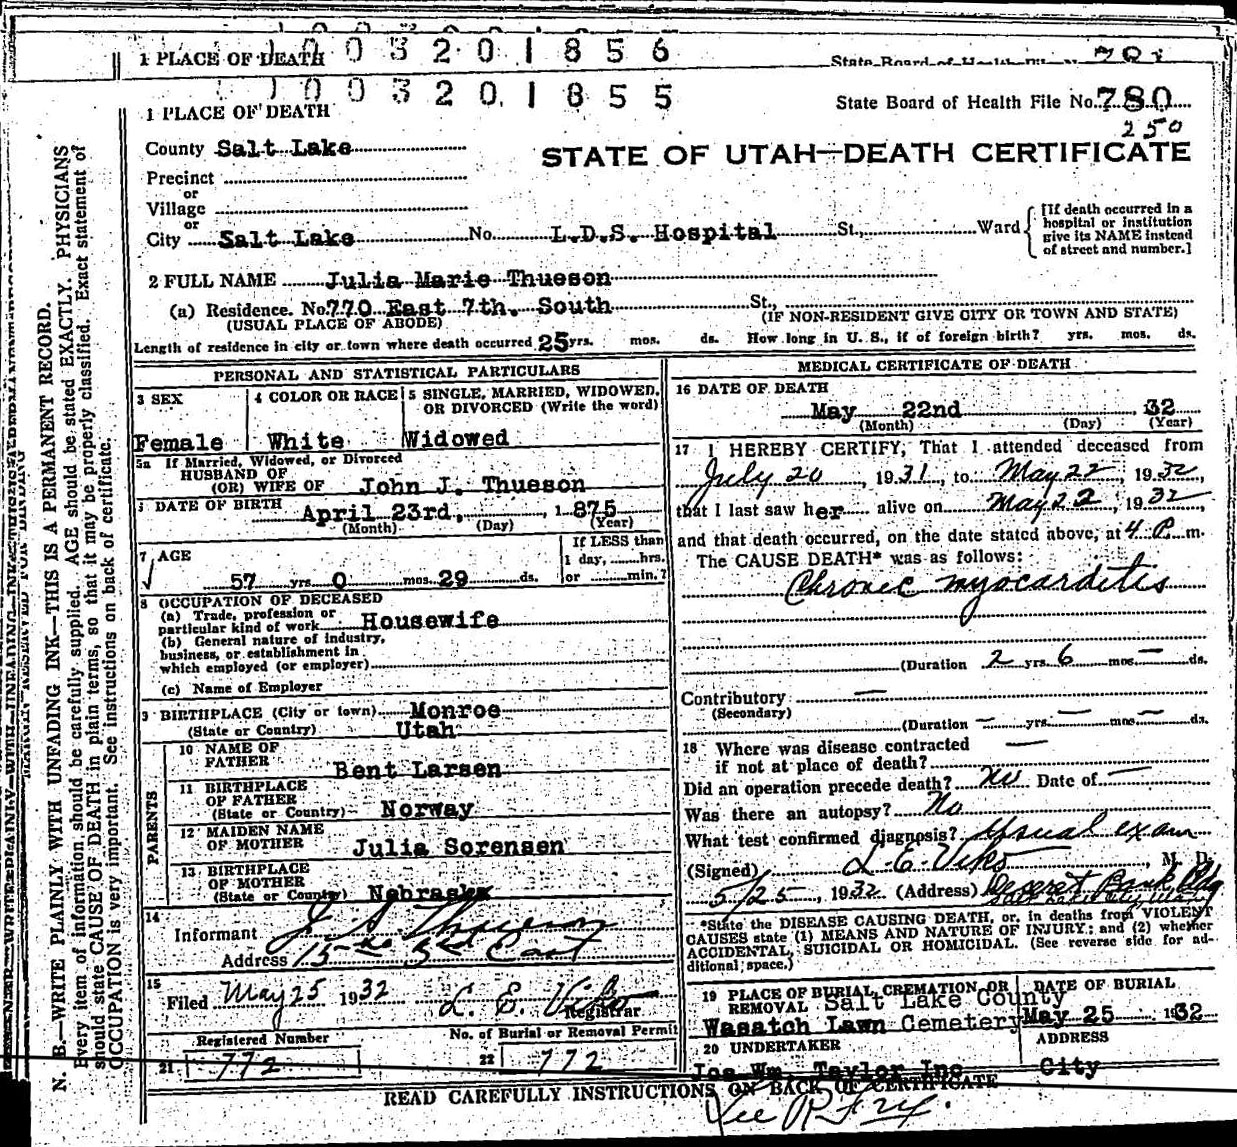 1 PLACE OF DEATH 1003201856
State Board of Health File No. 781
1003201855
1 PLACE OF DEATH
State Board of Health File No. 780
250
County Salt Lake
STATE OF UTAH—DEATH CERTIFICATE
Precinct
or
Village
or
City Salt Lake No. L.D.S. Hospital St., Ward
[If death occurred in a hospital or institution give its NAME instead of street and number.]
2 FULL NAME Julia Marie Thueson
(a) Residence. No. 770 East 7th. South St.,
(USUAL PLACE OF ABODE) (IF NON-RESIDENT GIVE CITY OR TOWN AND STATE)
Length of residence in city or town where death occurred 25 yrs. mos. ds. How long in U. S., if of foreign birth? yrs. mos. ds.
PERSONAL AND STATISTICAL PARTICULARS
3 SEX 4 COLOR OR RACE 5 SINGLE, MARRIED, WIDOWED, OR DIVORCED (Write the word)
Female White Widowed
5a If Married, Widowed, or Divorced
HUSBAND OF
(OR) WIFE OF John J. Thueson
DATE OF BIRTH
April 23rd, 1875
(Month) (Day) (Year)
7 AGE
If LESS than
1 day, hrs.
57 yrs. 0 mos. 29 ds. or min.?
8 OCCUPATION OF DECEASED
(a) Trade, profession or
particular kind of work Housewife
(b) General nature of industry,
business, or establishment in
which employed (or employer)
(c) Name of Employer
9 BIRTHPLACE (City or town) Monroe
(State or Country) Utah
PARENTS
10 NAME OF
FATHER Bent Larsen
11 BIRTHPLACE
OF FATHER
(State or Country) Norway
12 MAIDEN NAME
OF MOTHER Julia Sorensen
13 BIRTHPLACE
OF MOTHER
(State or Country) Nebraska
14
Informant J. S. Thueson
Address 15 3rd East
15
Filed May 25 1932 L. E. Viko
Registrar
Registered Number No. of Burial or Removal Permit
21 772 22 772
MEDICAL CERTIFICATE OF DEATH
16 DATE OF DEATH
May 22nd, 32
(Month) (Day) (Year)
17 I HEREBY CERTIFY, That I attended deceased from
July 20, 1931, to May 22, 1932,
that I last saw her alive on May 22, 1932,
and that death occurred, on the date stated above, at 4 P. m.
The CAUSE DEATH* was as follows:
Chronic myocarditis
(Duration 2 yrs. 6 mos. — ds.
Contributory —
(Secondary)
(Duration — yrs. — mos. — ds.
18 Where was disease contracted
if not at place of death? —
Did an operation precede death? No Date of —
Was there an autopsy? No
What test confirmed diagnosis? Usual exam
(Signed) L. E. Viko, M. D.
5/25, 1932 (Address) Deseret Bank Bldg
Salt Lake City, Utah
*State the DISEASE CAUSING DEATH, or, in deaths from VIOLENT
CAUSES state (1) MEANS AND NATURE OF INJURY; and (2) whether
ACCIDENTAL, SUICIDAL OR HOMICIDAL. (See reverse side for ad-
ditional space.)
19 PLACE OF BURIAL, CREMATION, OR
REMOVAL Salt Lake County
Wasatch Lawn Cemetery
DATE OF BURIAL
May 25 1932
20 UNDERTAKER ADDRESS
Jos Wm. Taylor Inc City
READ CAREFULLY INSTRUCTIONS ON BACK OF CERTIFICATE
N. B.—WRITE PLAINLY WITH UNFADING INK—THIS IS A PERMANENT RECORD.
Every item of information should be carefully supplied. AGE should be stated EXACTLY. PHYSICIANS
should state CAUSE OF DEATH in plain terms, so that it may be properly classified. Exact statement of
OCCUPATION is very important. See instructions on back of certificate.